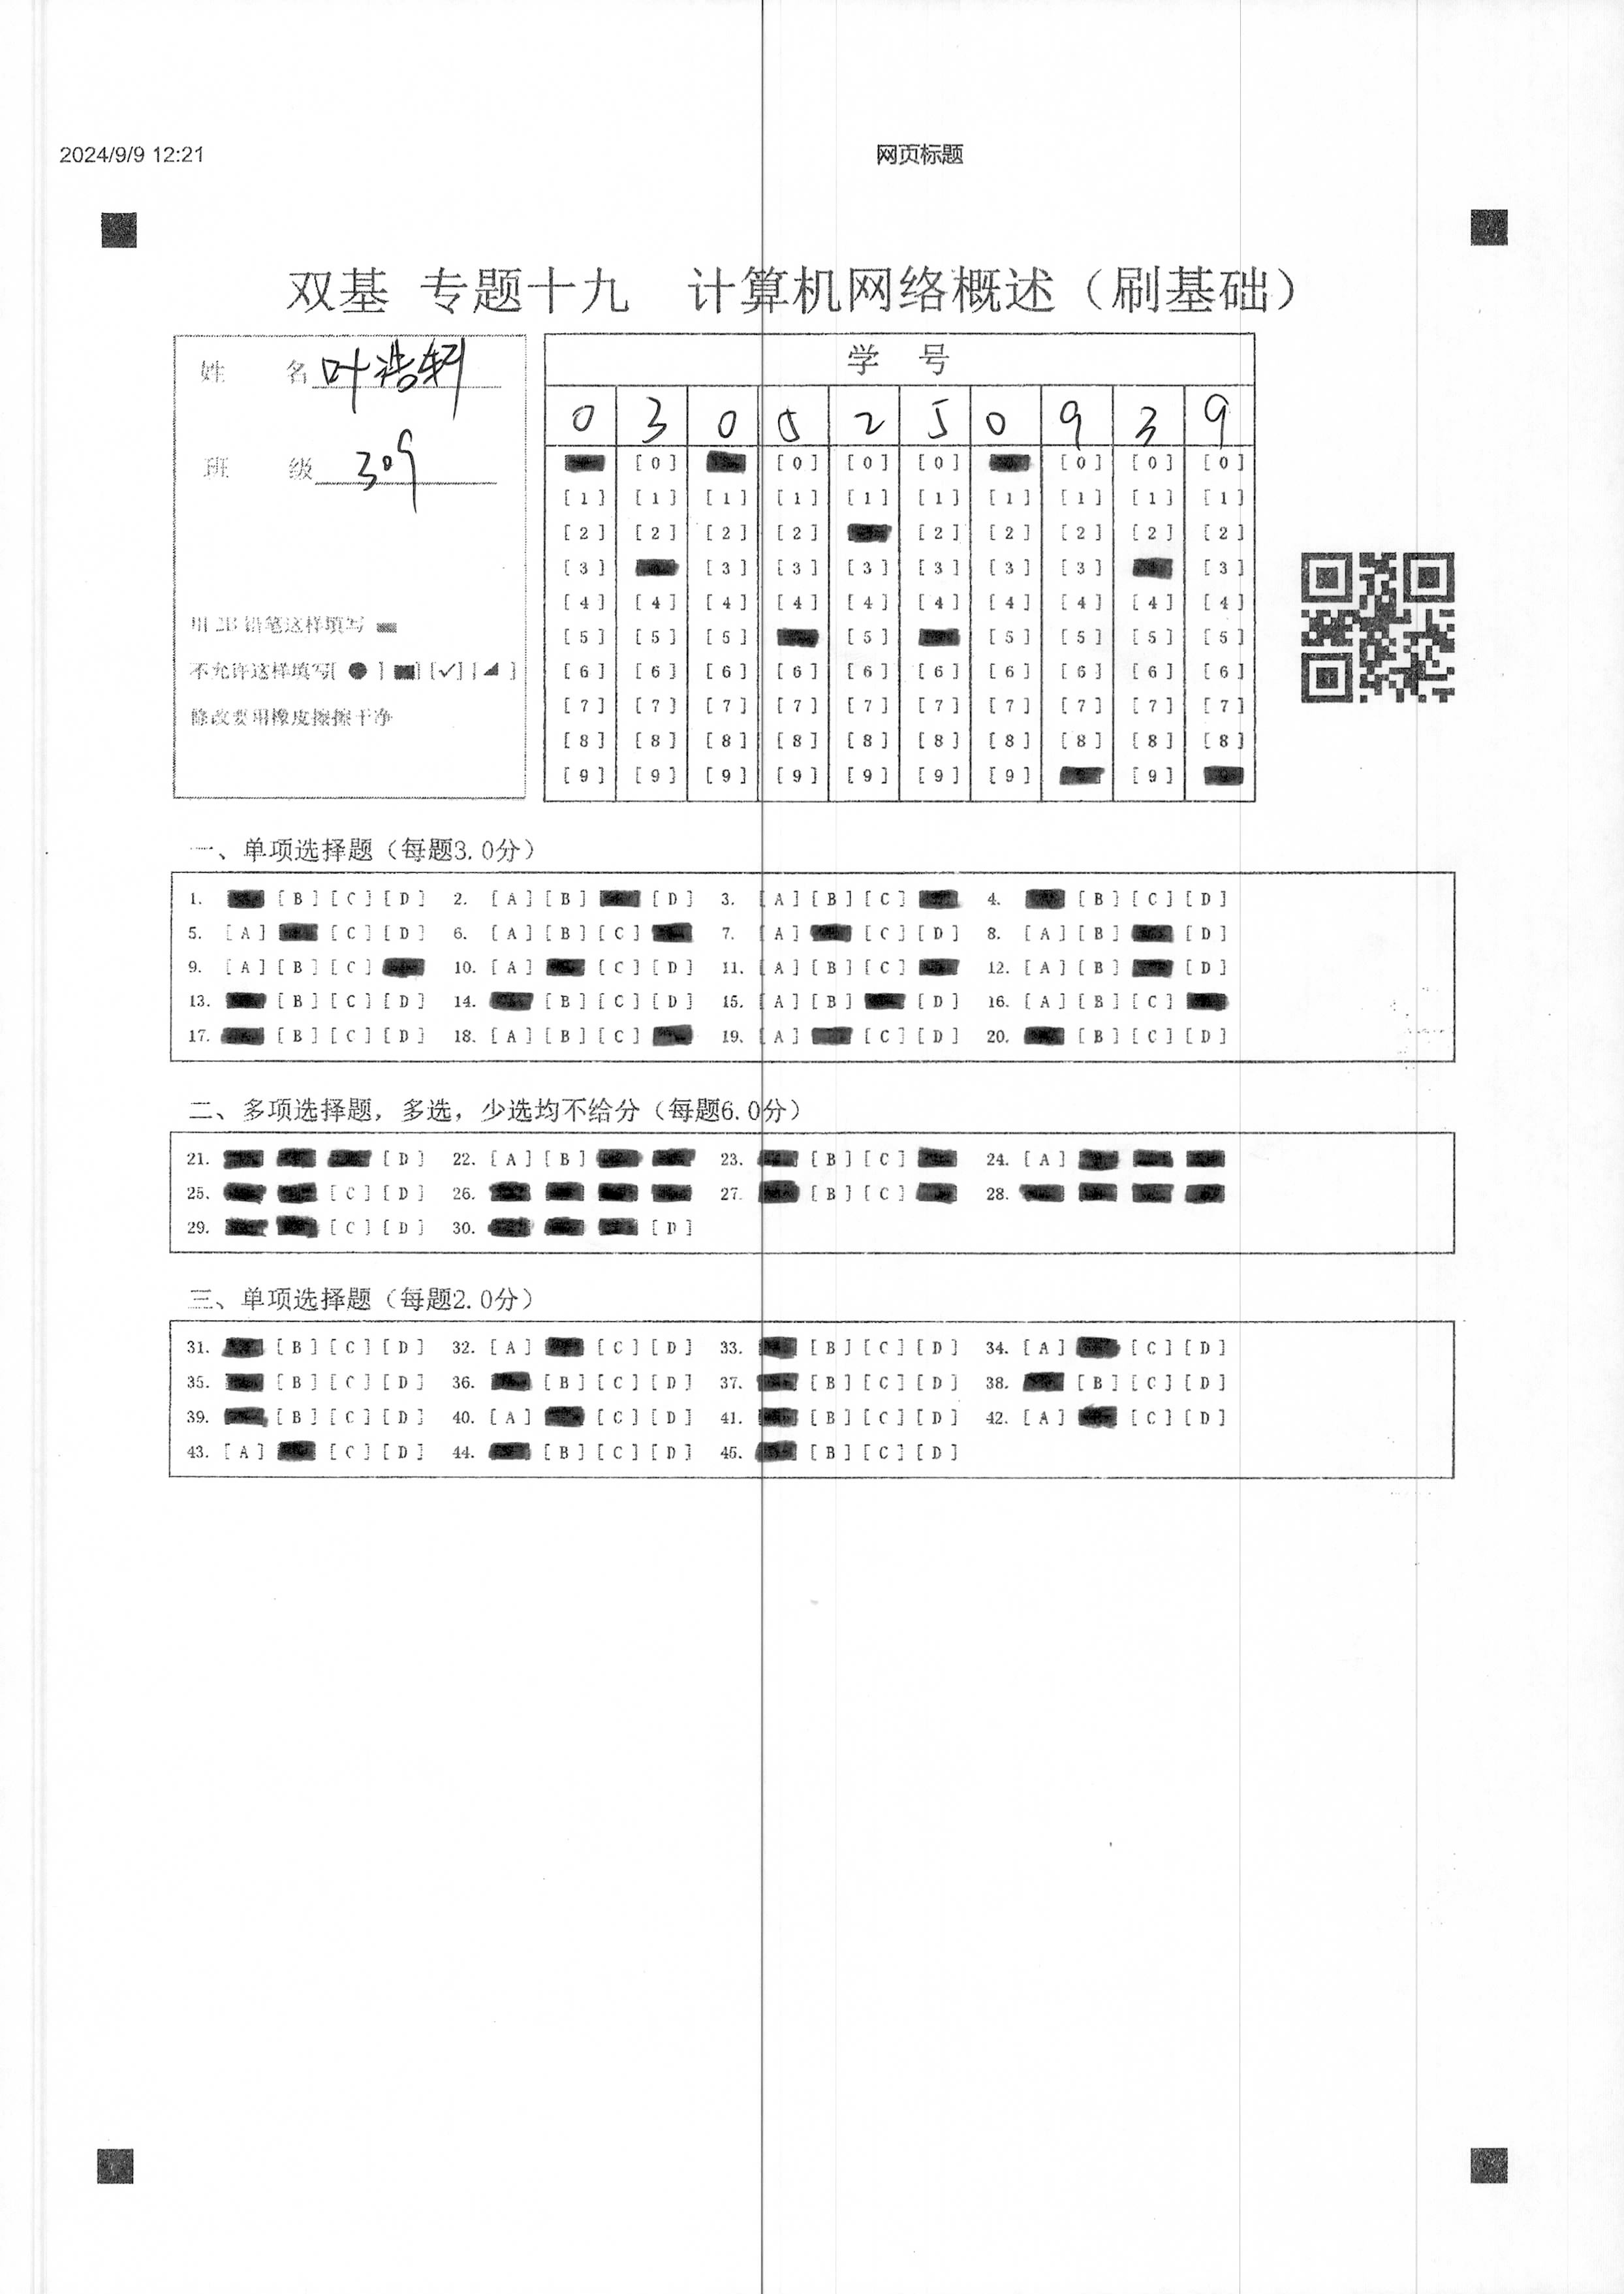 2024/9/9 12:21 网页标题
双基 专题十九 计算机网络概述（刷基础）
姓 名 叶浩轩
班 级 309
用 2B 铅笔这样填写
不允许这样填写[ ● ] [■] [✓] [◢ ]
修改要用橡皮擦擦干净
学 号
0 3 0 5 2 5 0 9 3 9
[0] [0] [0] [0] [0] [0] [0]
[1] [1] [1] [1] [1] [1] [1] [1] [1] [1]
[2] [2] [2] [2] [2] [2] [2] [2] [2]
[3] [3] [3] [3] [3] [3] [3] [3]
[4] [4] [4] [4] [4] [4] [4] [4] [4] [4]
[5] [5] [5] [5] [5] [5] [5] [5]
[6] [6] [6] [6] [6] [6] [6] [6] [6] [6]
[7] [7] [7] [7] [7] [7] [7] [7] [7] [7]
[8] [8] [8] [8] [8] [8] [8] [8] [8] [8]
[9] [9] [9] [9] [9] [9] [9] [9]
一、单项选择题（每题3.0分）
1. [B] [C] [D] 2. [A] [B] [D] 3. [A] [B] [C] 4. [B] [C] [D]
5. [A] [C] [D] 6. [A] [B] [C] 7. [A] [C] [D] 8. [A] [B] [D]
9. [A] [B] [C] 10. [A] [C] [D] 11. [A] [B] [C] 12. [A] [B] [D]
13. [B] [C] [D] 14. [B] [C] [D] 15. [A] [B] [D] 16. [A] [B] [C]
17. [B] [C] [D] 18. [A] [B] [C] 19. [A] [C] [D] 20. [B] [C] [D]
二、多项选择题，多选，少选均不给分（每题6.0分）
21. [D] 22. [A] [B] 23. [B] [C] 24. [A]
25. [C] [D] 26. 27. [B] [C] 28.
29. [C] [D] 30. [D]
三、单项选择题（每题2.0分）
31. [B] [C] [D] 32. [A] [C] [D] 33. [B] [C] [D] 34. [A] [C] [D]
35. [B] [C] [D] 36. [B] [C] [D] 37. [B] [C] [D] 38. [B] [C] [D]
39. [B] [C] [D] 40. [A] [C] [D] 41. [B] [C] [D] 42. [A] [C] [D]
43. [A] [C] [D] 44. [B] [C] [D] 45. [B] [C] [D]